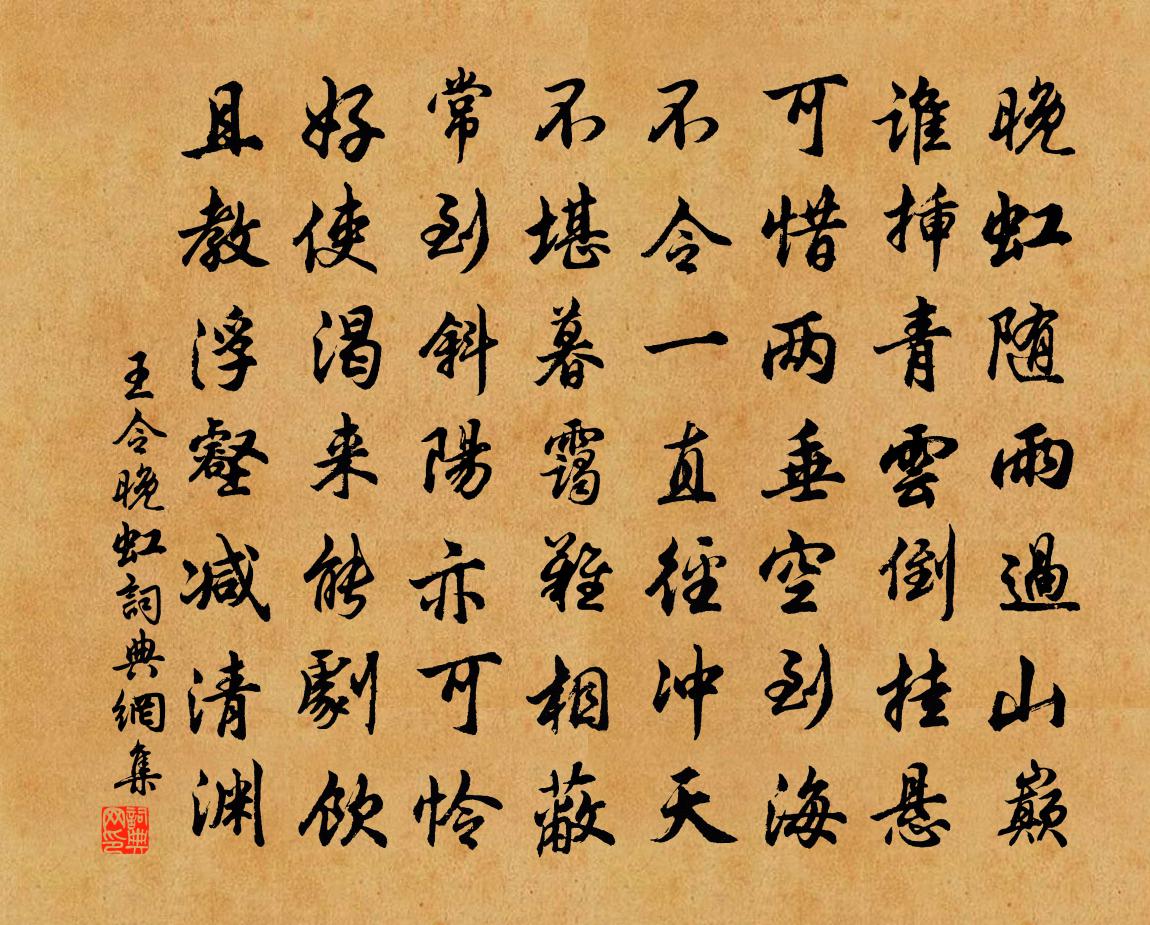 晚虹随雨過山巔
誰插青雲倒挂悬
可惜两垂空到海
不令一直徑冲天
不堪暮靄難相蔽
常到斜陽亦可怜
好使渴来能劇飲
且教浮壑减清渊
王令晚虹詞典網集
詞典网印